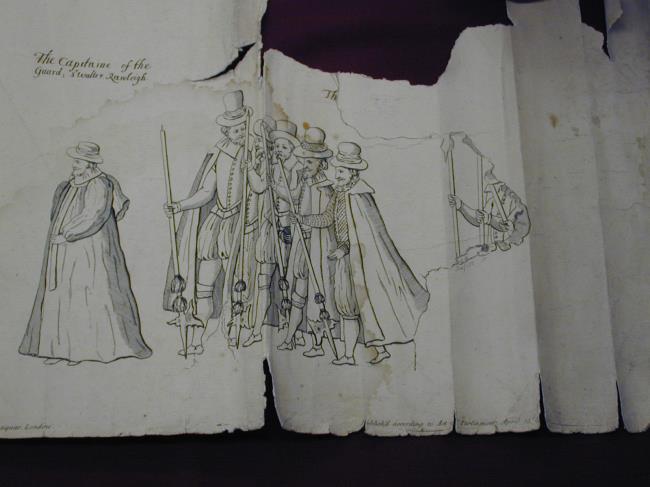 The Capitaine of the
Guard, Sr Walter Rawleigh
Th
square London
blishd according to Act of Parliament April